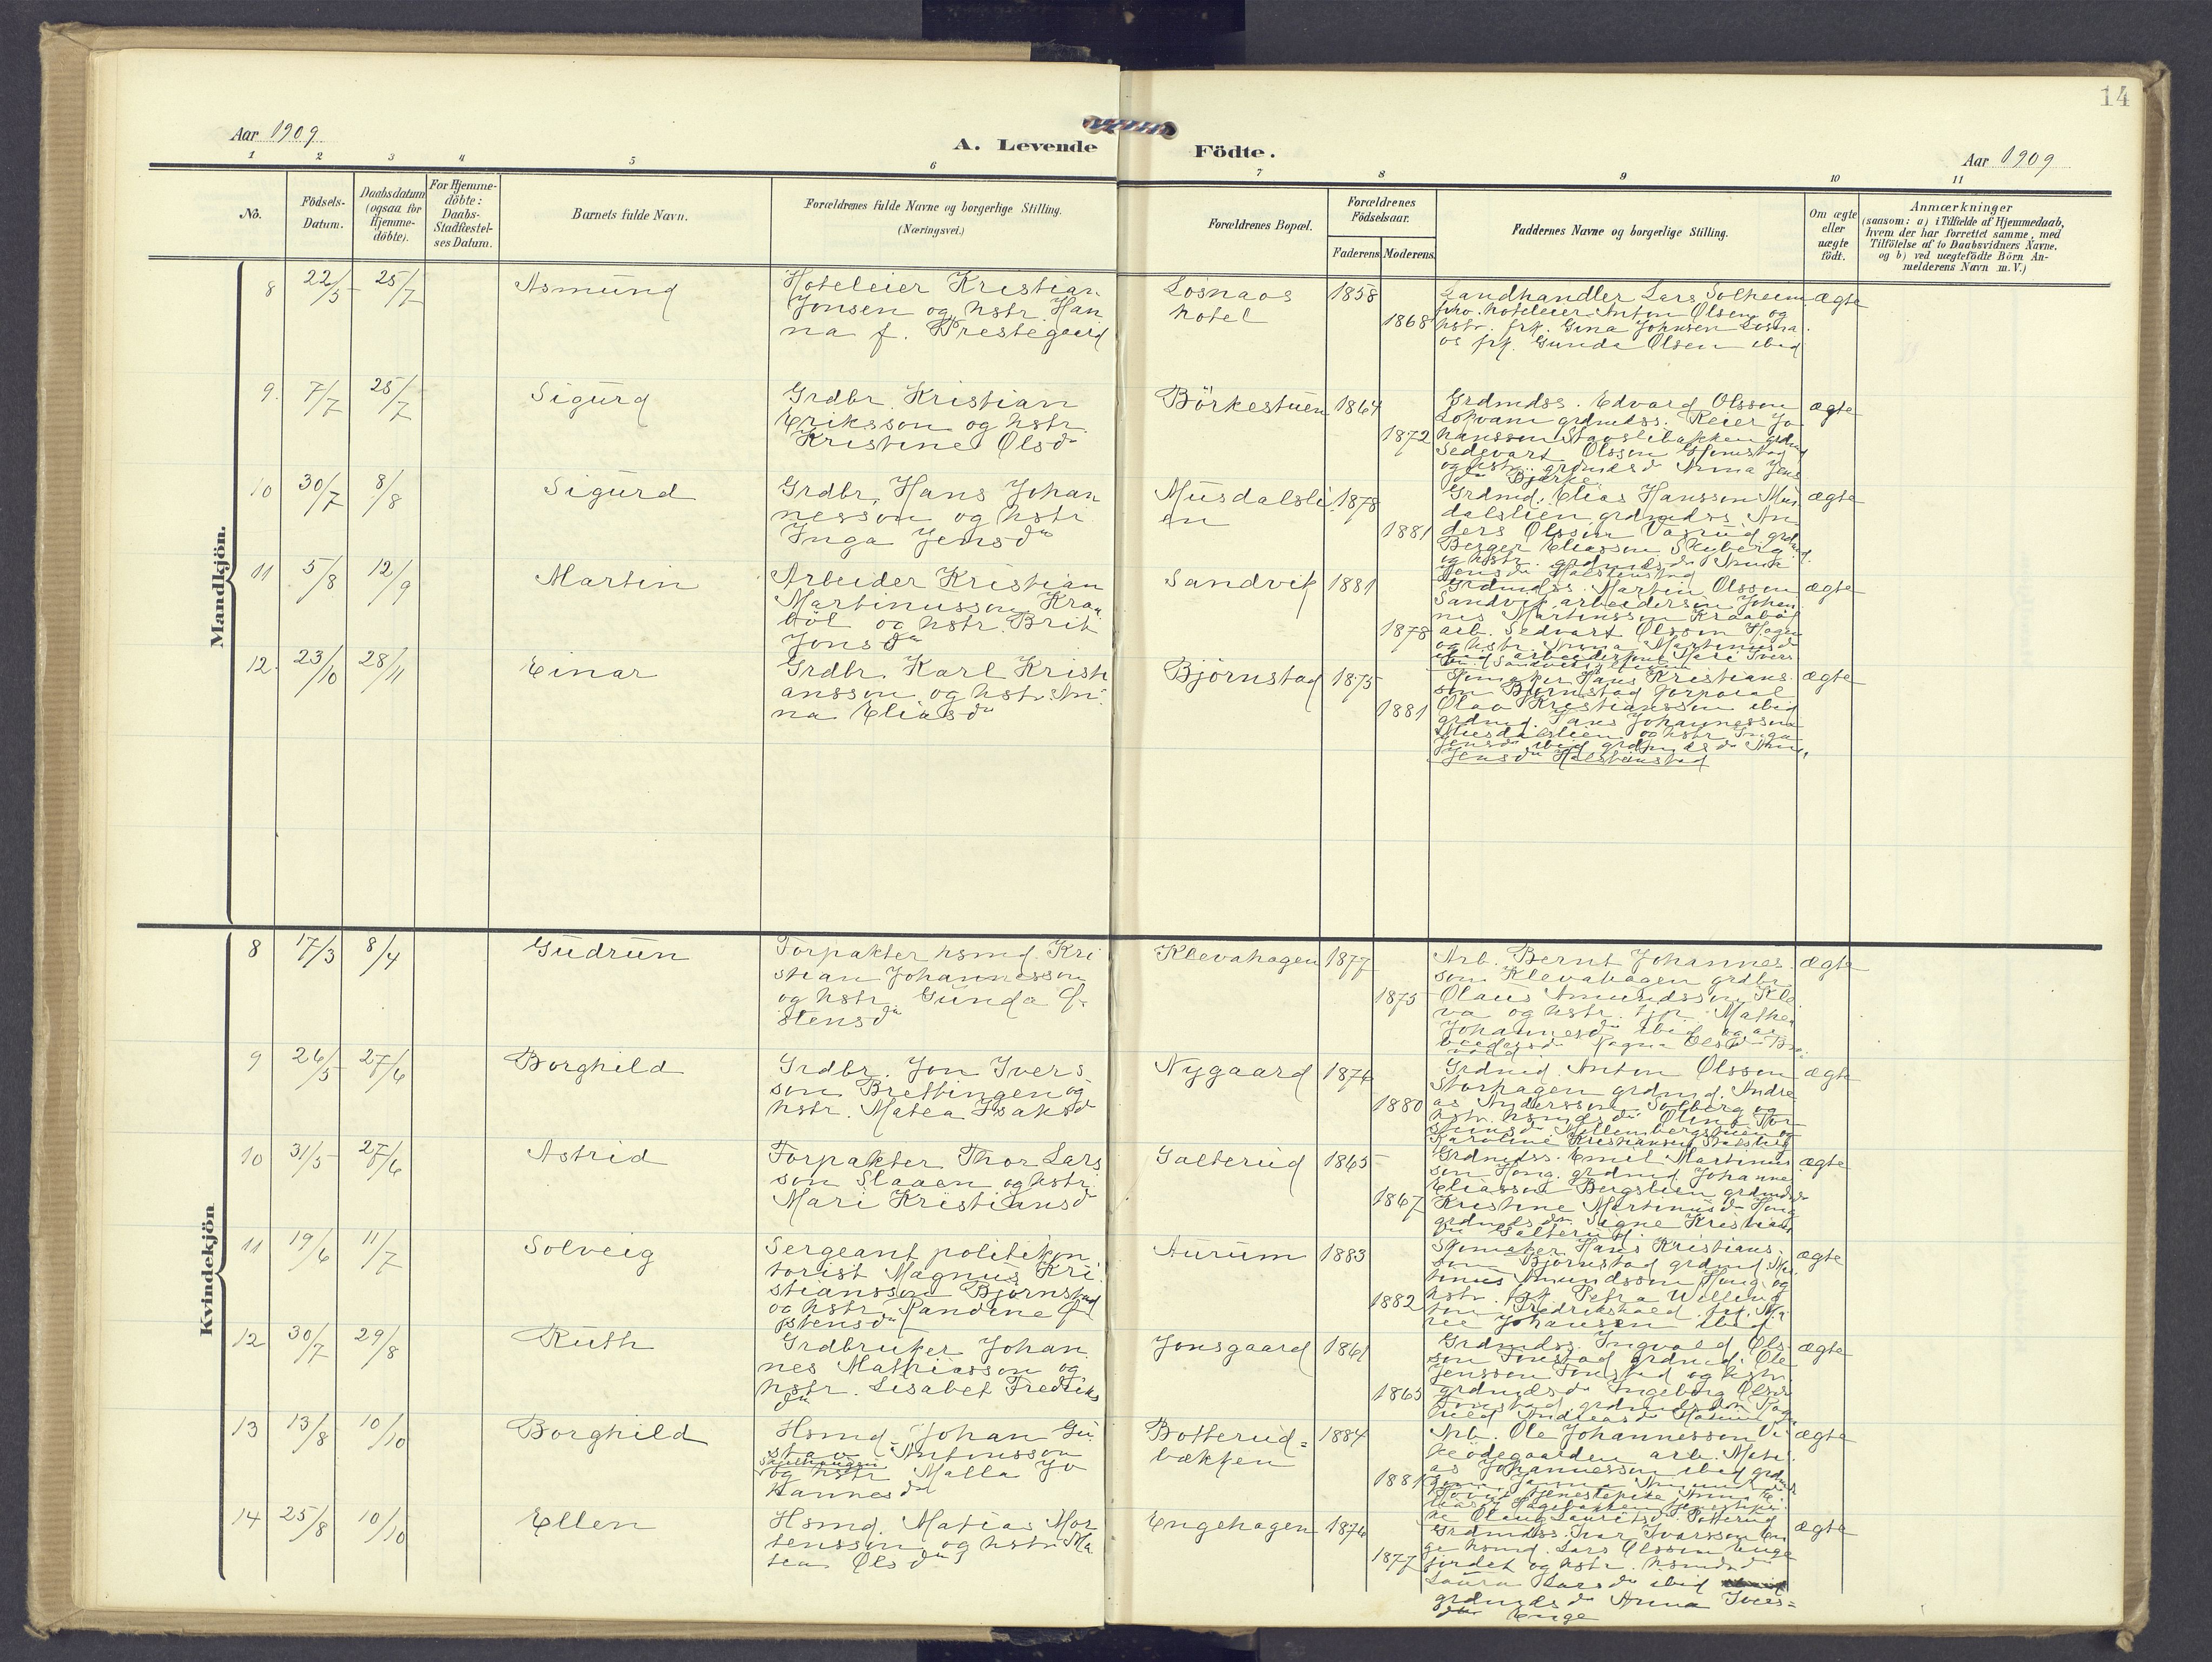 14
Aar 1909
A. Levende Födte.
Aar 1909
1 2 3 4 5 6 7 8 9 10 11
No.
Födsels-Datum.
Daabsdatum (ogsaa for Hjemmedöbte).
For Hjemmedöbte: Daabs-Stadfæstelses Datum.
Barnets fulde Navn.
Forældrenes fulde Navne og borgerlige Stilling. (Næringsvei.)
Forældrenes Bopæl.
Forældrenes Födselsaar.
Faderens Moderens
Faddernes Navne og borgerlige Stilling.
Om ægte eller uægte födt.
Anmærkninger
(saasom: a) i Tilfælde af Hjemmedaab,
hvem der har forrettet samme, med
Tilföielse af to Daabsvidners Navne.
og b) ved uægtefödte Börn Anmelderens Navn m.V.)
Mandkjön.
8 22/5 25/7 Asmund
Hoteleier Kristian
Jonsen og hstr. Han
na f. Prestegaard
Losnaos
hotel
1858
1868
Landhandler Lars Solheim
fhv. hoteleier Anton Olsen og
hstr. frk. Gina Johnsen Losna
os frk. Gunda Olsen ibid
ægte
9. 7/7 25/7 Sigurd
Grdbr. Kristian
Eriksson og hstr.
Kristine Olsdr
Börkestuen
1864
1872
Grdmdss. Edvard Olsson
grdmdss. Reier Jo
hansson
Sedvart Olsson
og hstr. grdmdsdr Anna Jens
dr Bjerke
ægte
10 30/7 8/8 Sigurd
Grdbr. Hans Johan
nesson og hstr
Inga Jensdr
Musdalsli
en
1878
1881
Grdmd. Elias Hansson Mus
dalslien grdmdss An
ders Olsson
Berger Eliasson Skyberg
og hstr. grdmdsdr
Jensdr Halstenstad
ægte
11 5/8 12/9 Martin
Arbeider Kristian
Martinusson Kraa
böl og hstr. Brit
Jonsdr
Sandvik
1881
1878
Grdmdss. Martin Olsson
Sandvik arbeiderson Johan
nes Martinsson Kraaböl
arb. Sedvart Olsson Hagen
og hstr. Anna Martinusdr
ibid arbeider Mari Ivers
ægte
12. 23/10 28/11 Einar
Grdbr. Karl Kristi
ansson og hstr. An
na Eliasdr
Björnstad
1875
1881
Skomaker Hans Kristians
son Björnstad korporal
Olav Kristiansson ibid
grdmd. Hans Johannesson
Musdalslien og hstr Inga
Jensdr ibid grdmdsdr Anne
Jensdr Halstenstad
ægte
Kvindekjön
8 17/3 8/4 Gudrun
Forpakter hsmd. Kri
stian Johannesson
og hstr. Gunda Ö
stensdr
Klevahagen
1877
1875
Arb. Bernt Johannes
son Klevahagen grdbr.
Olaus Amundsson Kle
va og hstr. tjp. Mathea
Johannesdr ibid og ar
beidersdr Magna Olsdr
ægte
9 26/5 27/6 Borghild
Grdbr. Jon Ivers
son Brettingen og
hstr. Matea Isaksdr
Nygaard
1876
1880
Grdmd. Anton Olsson
Storhagen grdmd. Andre
as Andersson Solberg og
hstr. hsmdsdr Olina Tor
stensdr
Karoline Kristiansen
ægte
10 31/5 27/6 Astrid
Forpakter Thor Lars
son Slaaen og hstr.
Mari Kristiansdr
Galterud
1865
1867
Grdmdss. Emil Martinus
son Hong grdmd Johannes
Eliasson Bergslien grdmdsdr
Kristine Martinusdr Hong
grdmdsdr Signe Kristians
dr Galterud.
ægte
11 19/6 11/7 Solveig
Sergeant politikon
torist Magnus Kri
stiansson Björnstad
og hstr. Pandine Ö
stensdr
Aurum
1883
1882
Skomaker Hans Kristians
son Björnstad grdmd. Mar
tinus Amundsson Hong og
hstr. frk. Petra Willing
ton Fredrikshald frk. Ma
rie Johansen ibid
ægte
12 30/7 29/8 Ruth
Grdbruker Johan
nes Mathiasson og
hstr. Lisabet Fredriks
dr
Jonsgaard
1861
1865
Grdmdss. Ingvald Ols
son Fonstad grdmd. Ole
Jensson Fonstad og hstr.
grdmdsdr Ingeborg Olsdr
Fonstad grdmdsdr
ægte
13 13/8 10/10 Borghild
Hsmd. Johan Gu
stav Antonsson
og hstr Malla Jo
hannesdr
Botterud=
bækken
1884
1881
Arb. Ole Johannesson Vi
keödegaarden arb. Mati
as Johannesson ibid
tjenestepike
ægte
14 25/8 10/10 Ellen
Hsmd. Matias Mor
tensson og hstr Ma
tea Olsdr
Engehagen
1876
1877
Grdmdss. Ivar Ivarsson En
ge hsmd. Lars Olsson Enge
jordet og hstr. hsmdsdr
Laura Larsdr ibid
grdmdsdr Anna Ivers=
dr Enge
ægte